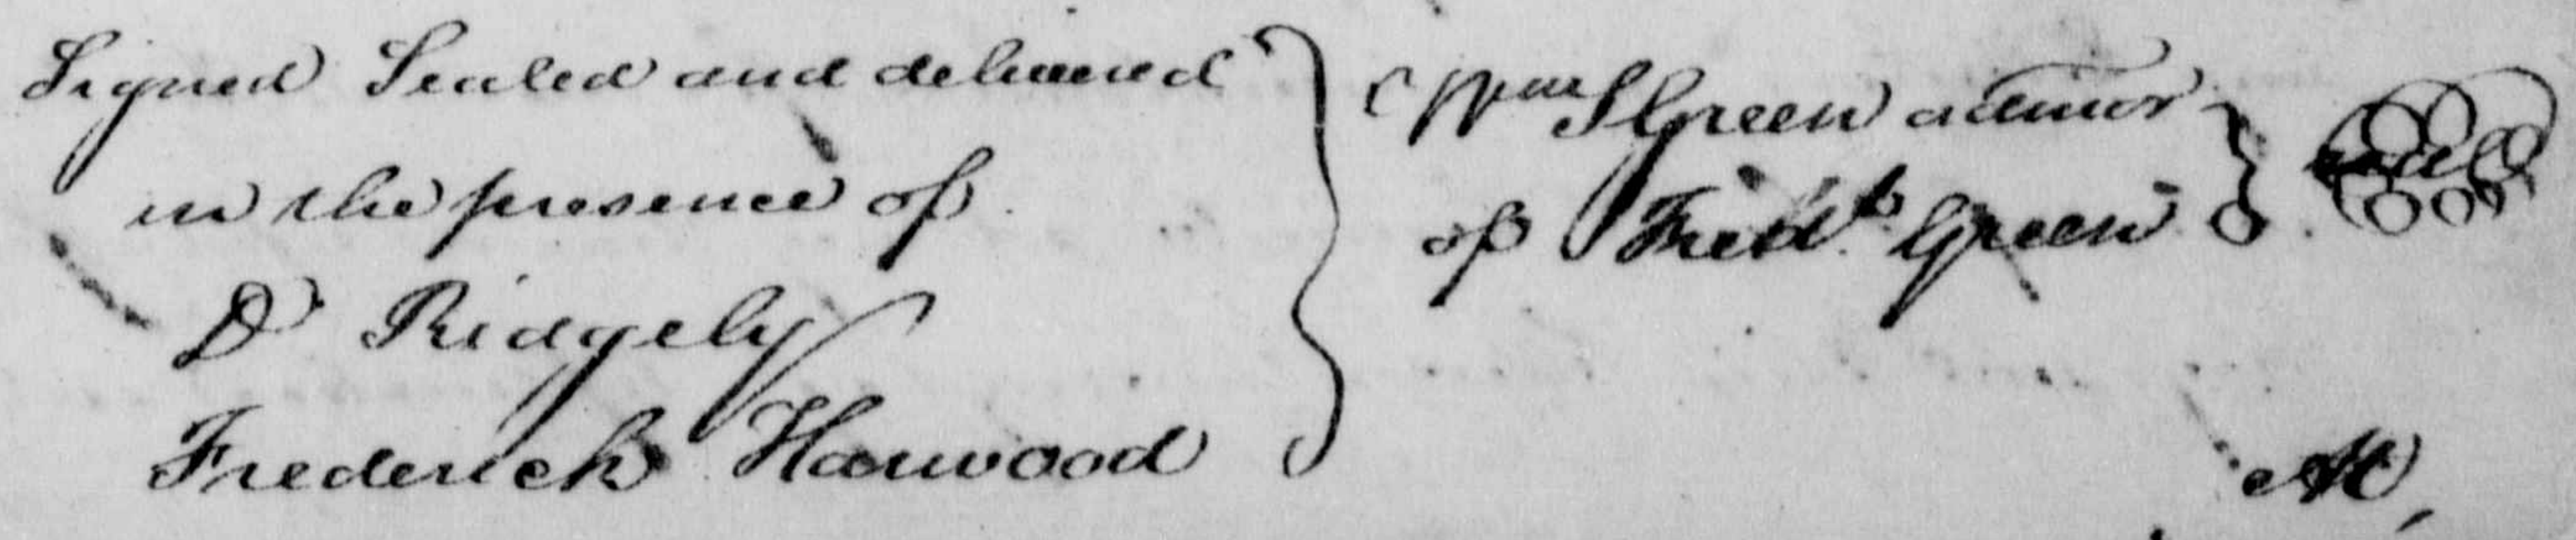 Signed Sealed and delivered
in the presence of
D Ridgely
Frederick Harwood
Wm S Green admor
of Fredk Green
seal
At,